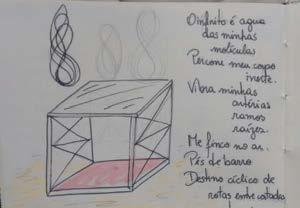 O infinito é agua
das minhas
moléculas
Percorre meu corpo
inerte.
Vibra minhas
artérias
ramos
raízes.
Me finco no ar.
Pés de barro
Destino cíclico de
rotas entre cortadas